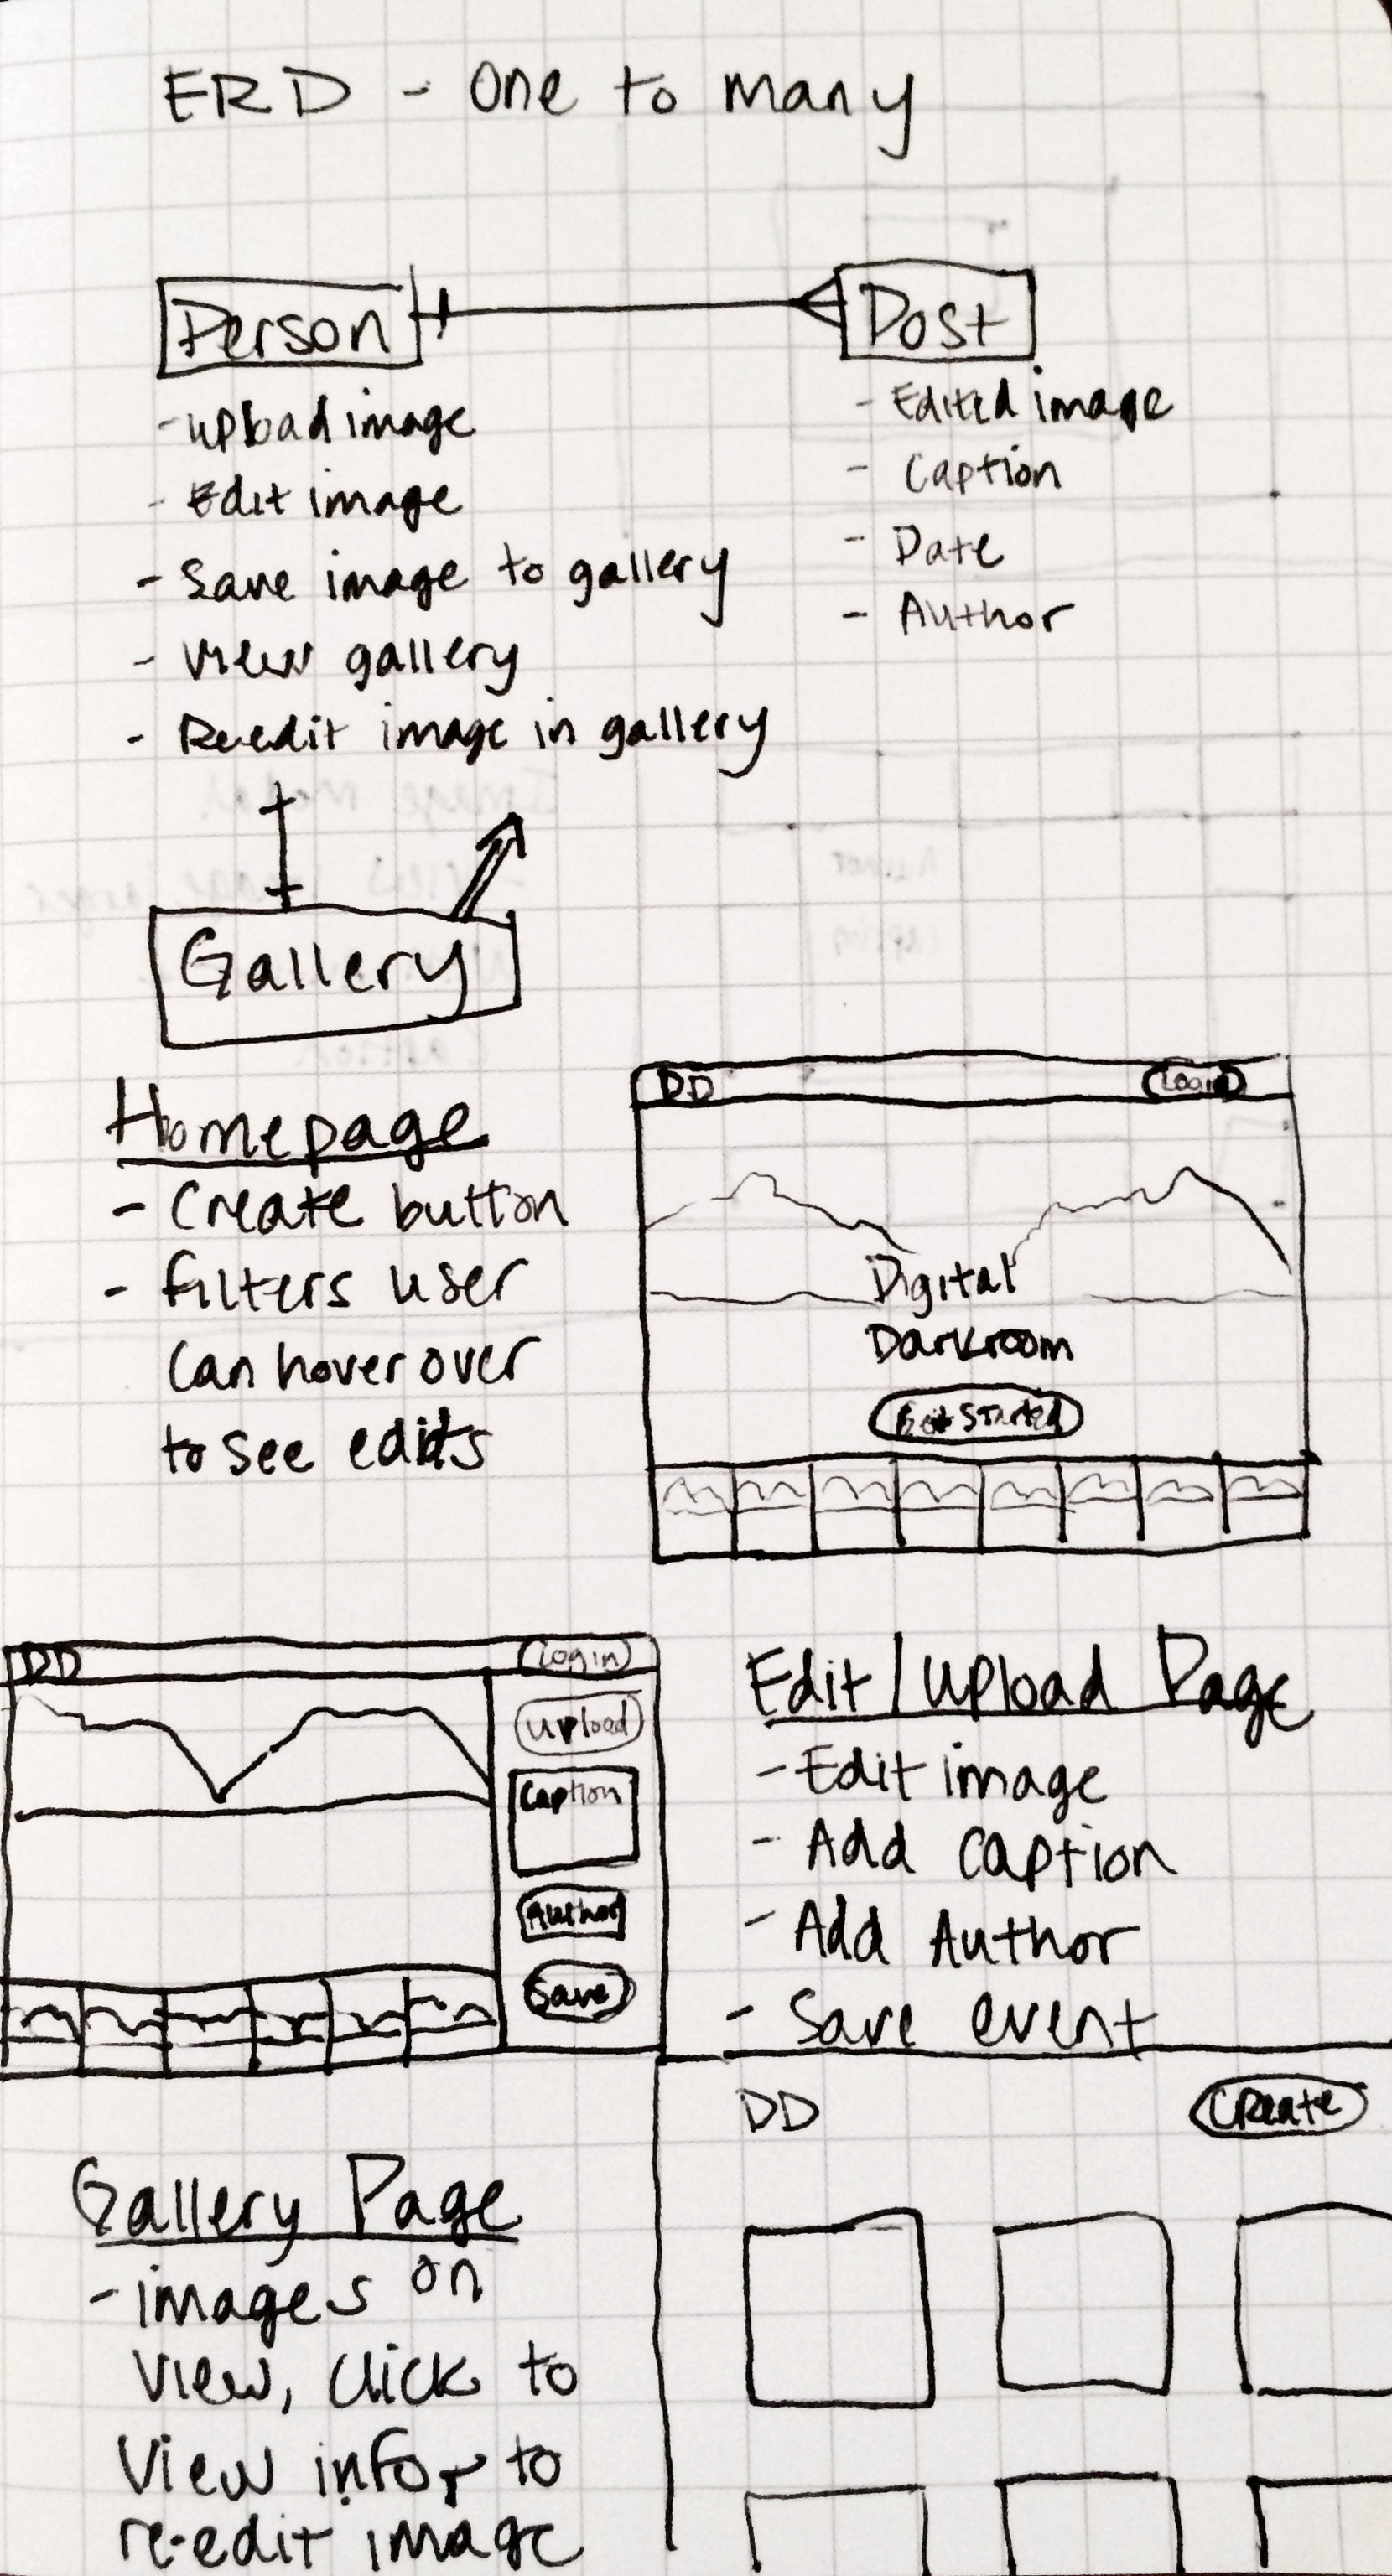 ERD - One to many
Person
Post
- upload image
- Edit image
- Save image to gallery
- View gallery
- Re-edit image in gallery
- Edited image
- Caption
- Date
- Author
Gallery
Homepage
- Create button
- Filters user
can hover over
to see edits
DD
Login
Digital
Darkroom
Get Started
DD
Login
Upload
Caption
Author
Save
Edit/Upload Page
- Edit image
- Add caption
- Add Author
- Save event
Gallery Page
- images on
view, click to
view info, to
re-edit image
DD
Create